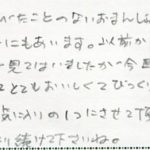 いたことのないおまんじ
にもあいます。以前か
見てはいましたが今
てとてもおいしくてびっくり
気に入りの1つにさせて頂
り続けて下さいね。